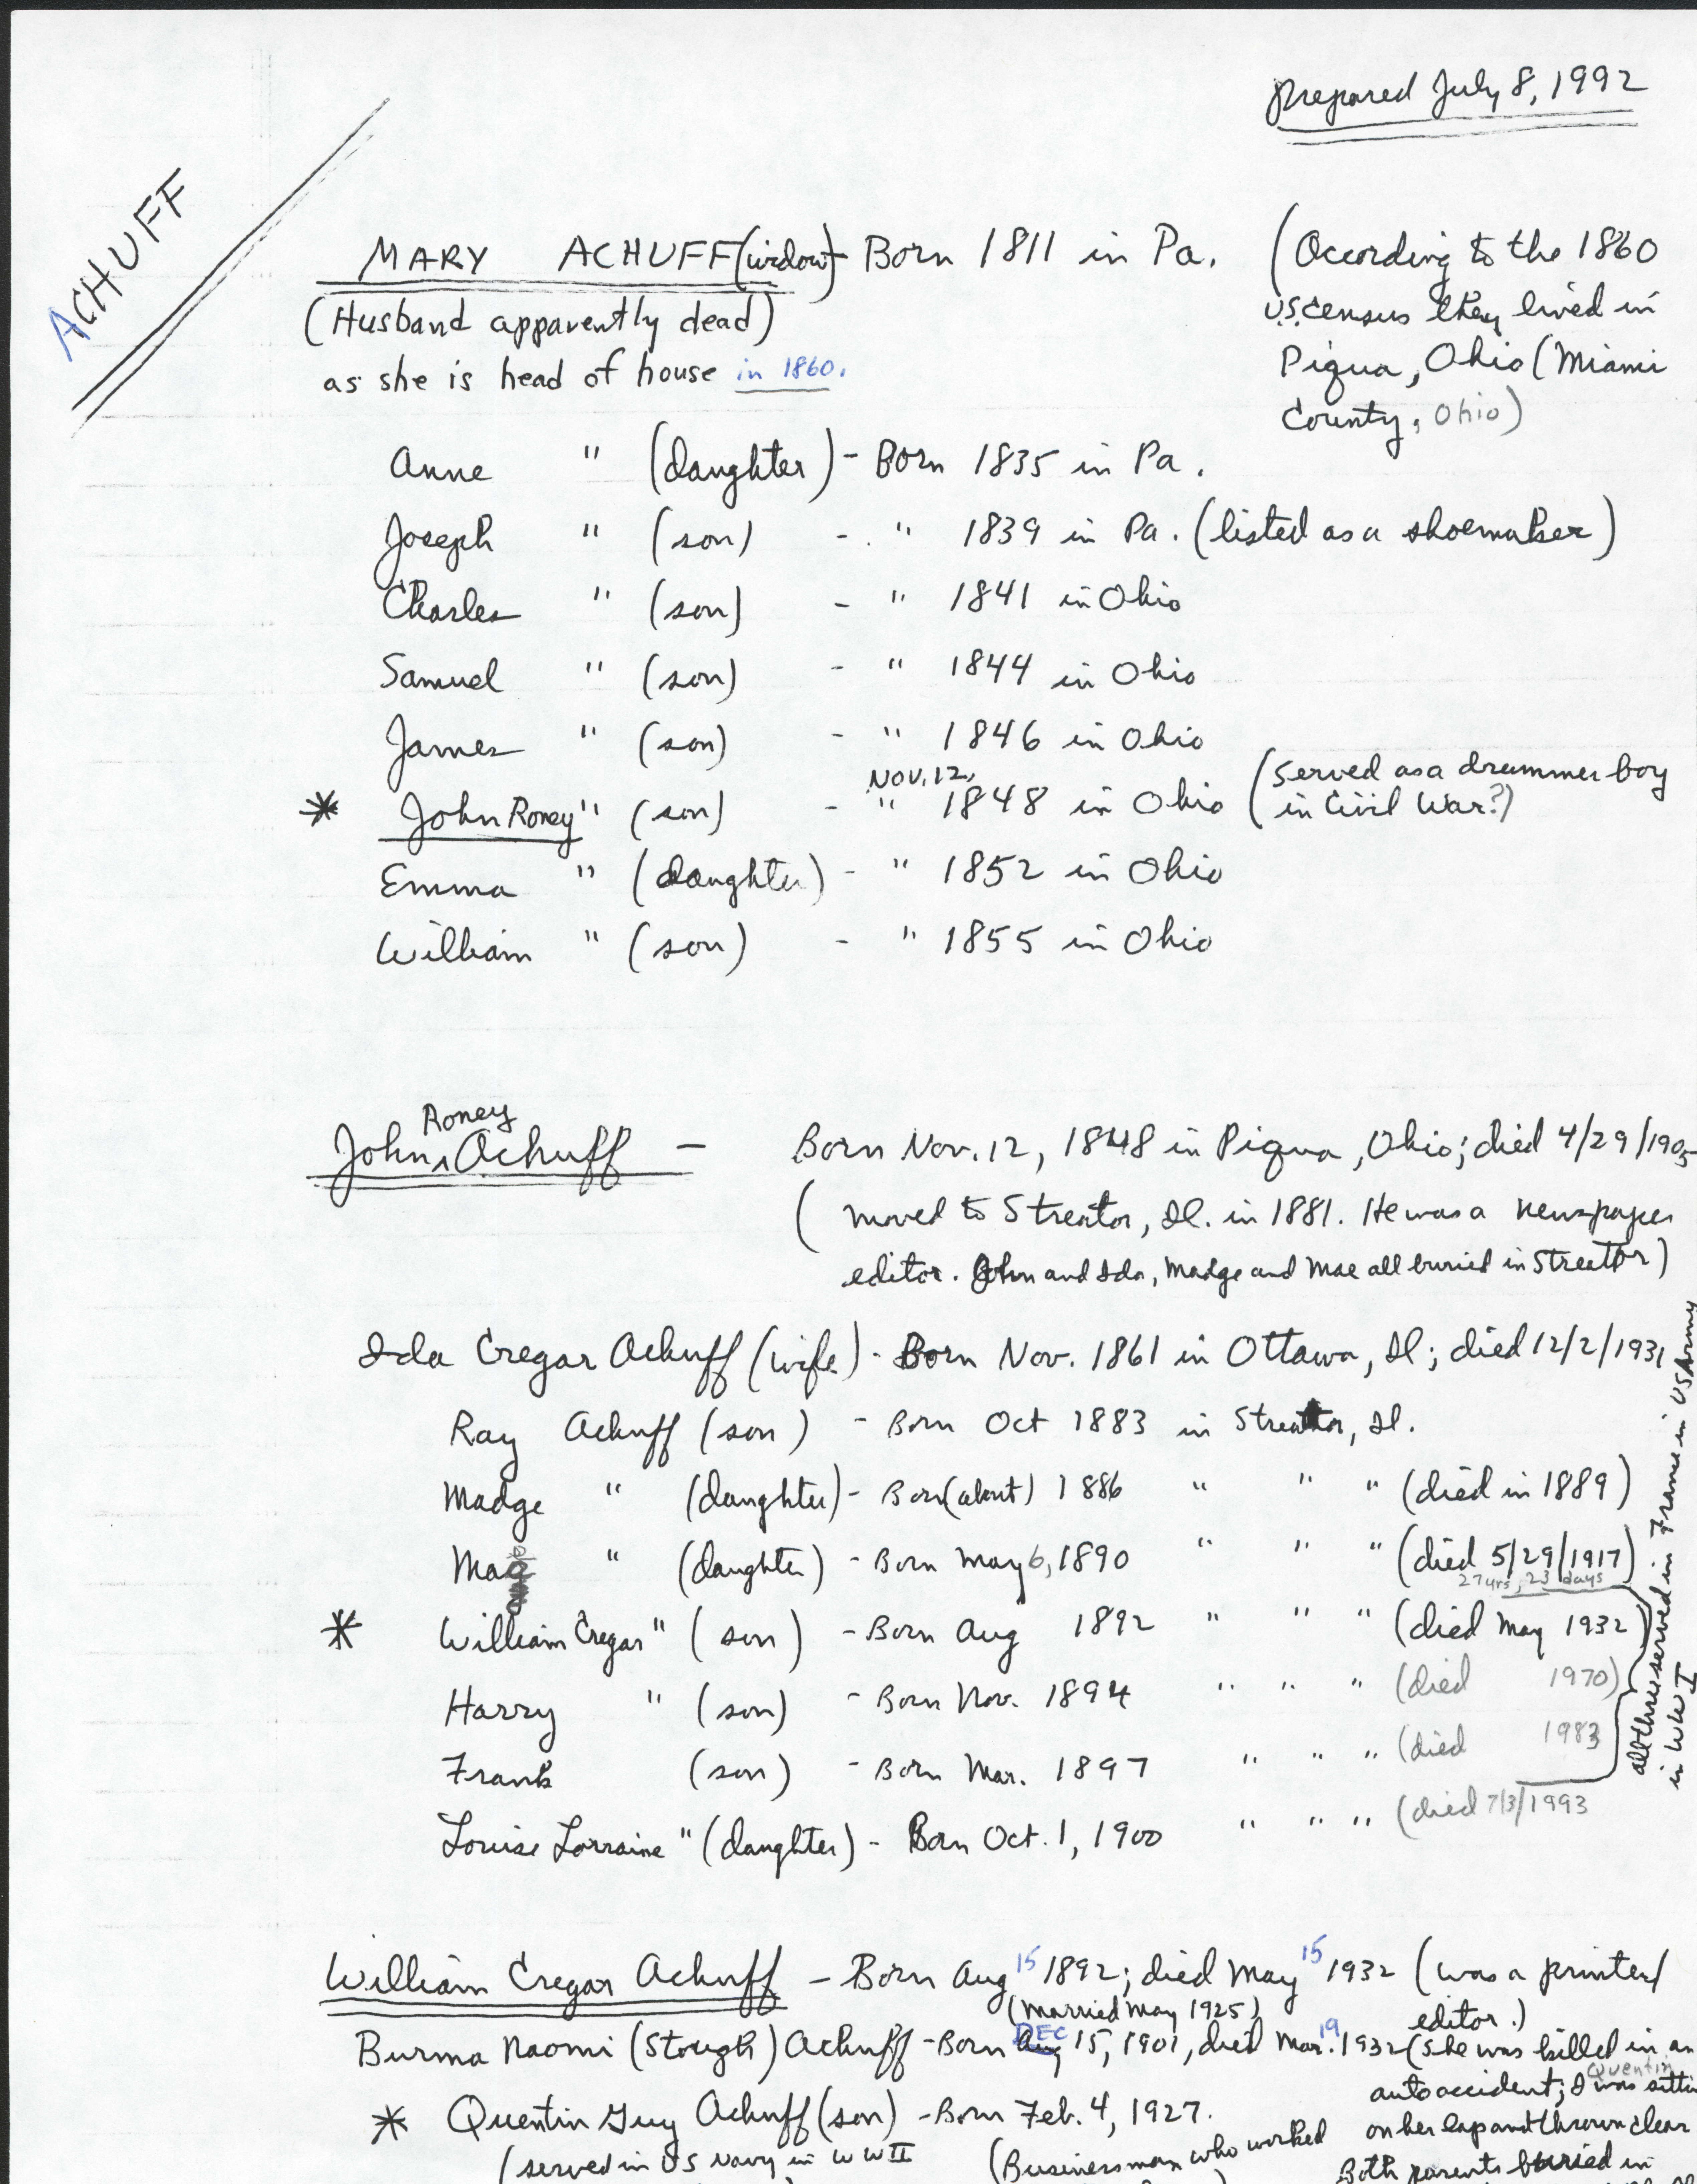 prepared July 8, 1992
ACHUFF
MARY ACHUFF (widow) - Born 1811 in Pa. (According to the 1860
(Husband apparently dead) U.S. Census they lived in
as she is head of house in 1860. Piqua, Ohio (Miami
County, Ohio)
Anne " (daughter) - Born 1835 in Pa.
Joseph " (son) - " 1839 in Pa. (listed as a shoemaker)
Charles " (son) - " 1841 in Ohio
Samuel " (son) - " 1844 in Ohio
James " (son) - " 1846 in Ohio
NOV. 12, (served as a drummer boy
* John Roney " (son) - " 1848 in Ohio in Civil War?)
Emma " (daughter) - " 1852 in Ohio
William " (son) - " 1855 in Ohio
Roney
John ^ Achuff - Born Nov. 12, 1848 in Piqua, Ohio; died 4/29/1905
(moved to Streator, Il. in 1881. He was a newspaper
editor. John and Ida, Madge and Mae all buried in Streator)
Ida Cregar Achuff (wife) - Born Nov. 1861 in Ottawa, Il; died 12/2/1931
Ray Achuff (son) - Born Oct 1883 in Streator, Il.
Madge " (daughter) - Born (about) 1886 " " " (died in 1889)
Mae " (daughter) - Born May 6, 1890 " " " (died 5/29/1917)
27 yrs, 23 days
* William Cregar " (son) - Born Aug 1892 " " " (died May 1932)
Harry " (son) - Born Nov. 1894 " " " (died 1970)
Frank (son) - Born Mar. 1897 " " " (died 1983
Louise Lorraine " (daughter) - Born Oct. 1, 1900 " " " (died 7/3/1993
all three served in France in US Army
in WW I
William Cregar Achuff - Born Aug 15 1892; died May 15 1932 (was a printer/
(married May 1925) editor.)
Burma Naomi (Stough) Achuff - Born Aug DEC 15, 1901, died Mar. 19 1932 (She was killed in an
auto accident; I Quentin was sittin
* Quentin Guy Achuff (son) - Born Feb. 4, 1927. on her lap and thrown clear
(served in US Navy in WW II (Businessman who worked Both parents buried in